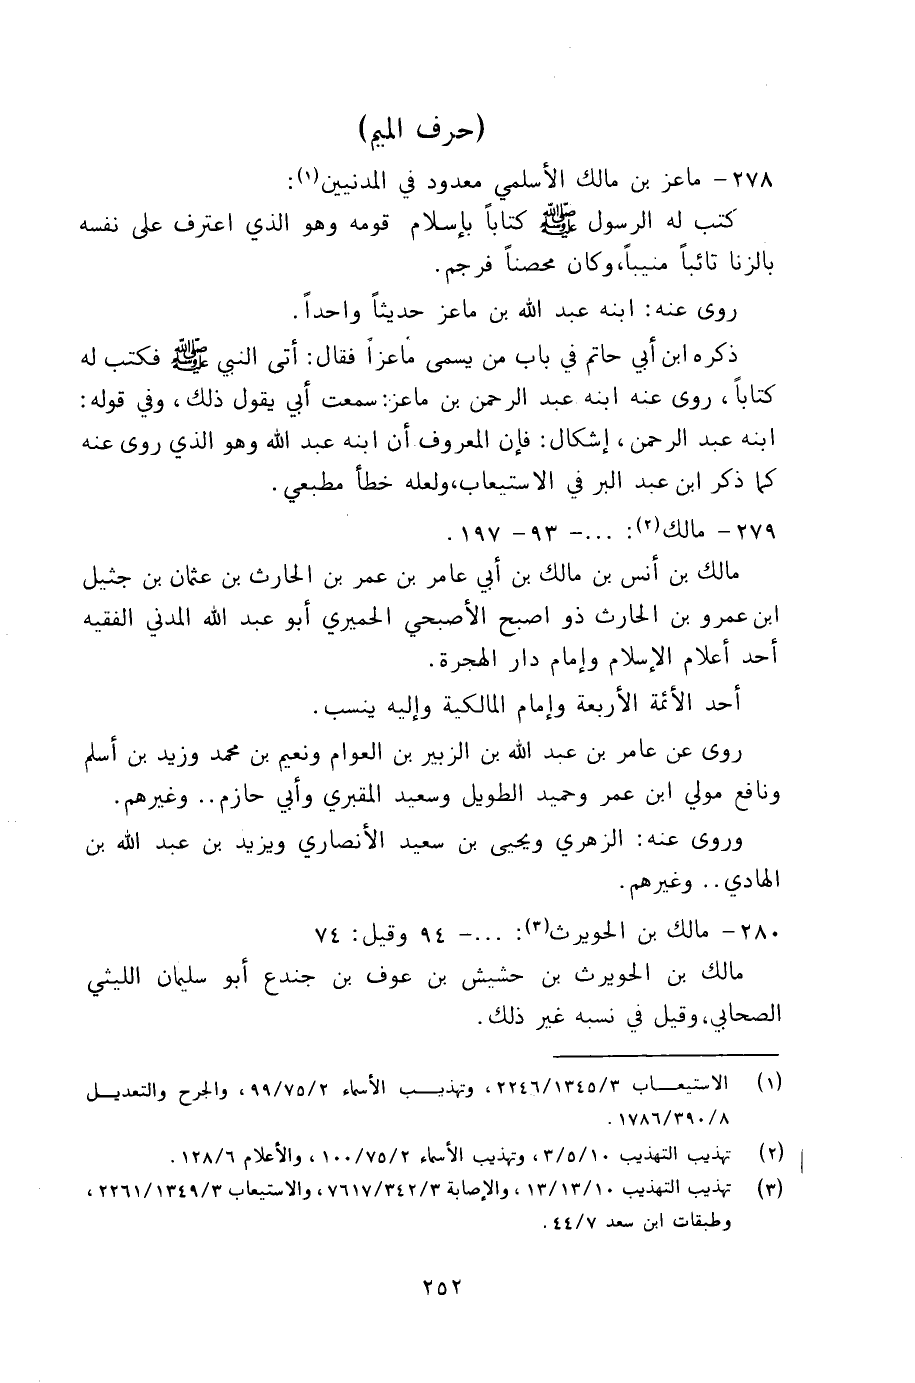 (حرف الميم)
٢٧٨ - ماعز بن مالك الأسلمي معدود في المدنيين(١):
كتب له الرسول ﷺ كتاباً بإسلام قومه وهو الذي اعترف على نفسه
بالزنا تائباً منيباً، وكان محصناً فرجم.
روى عنه: ابنه عبد الله بن ماعز حديثاً واحداً.
ذكره ابن أبي حاتم في باب من يسمى ماعزاً فقال: أتى النبي ﷺ فكتب له
كتاباً، روى عنه ابنه عبد الرحمن بن ماعز: سمعت أبي يقول ذلك، وفي قوله:
ابنه عبد الرحمن، إشكال: فإن المعروف أن ابنه عبد الله وهو الذي روى عنه
كما ذكر ابن عبد البر في الاستيعاب، ولعله خطأ مطبعي.
٢٧٩ - مالك(٢): ...- ٩٣ - ١٩٧.
مالك بن أنس بن مالك بن أبي عامر بن عمر بن الحارث بن عثمان بن جثيل
ابن عمرو بن الحارث ذو اصبح الأصبحي الحميري أبو عبد الله المدني الفقيه
أحد أعلام الإسلام وإمام دار الهجرة.
أحد الأئمة الأربعة وإمام المالكية وإليه ينسب.
روى عن عامر بن عبد الله بن الزبير بن العوام ونعيم بن محمد وزيد بن أسلم
ونافع مولي ابن عمر وحميد الطويل وسعيد المقبري وأبي حازم.. وغيرهم.
وروى عنه: الزهري ويحيى بن سعيد الأنصاري ويزيد بن عبد الله بن
الهادي.. وغيرهم.
٢٨٠ - مالك بن الحويرث(٣): ...- ٩٤ وقيل: ٧٤
مالك بن الحويرث بن حشيش بن عوف بن جندع أبو سليمان الليثي
الصحابي، وقيل في نسبه غير ذلك.
(١) الاستيعـاب ٢٢٤٦/١٣٤٥/٣، وتهذيـب الأسماء ٩٩/٧٥/٢، والجرح والتعديـل
١٧٨٦/٣٩٠/٨.
(٢) تهذيب التهذيب ٣/٥/١٠، وتهذيب الأسماء ١٠٠/٧٥/٢، والأعلام ١٢٨/٦.
(٣) تهذيب التهذيب ١٣/١٣/١٠، والإصابة ٧٦١٧/٣٤٢/٣، والاستيعاب ٢٢٦١/١٣٤٩/٣،
وطبقات ابن سعد ٤٤/٧.
٢٥٢